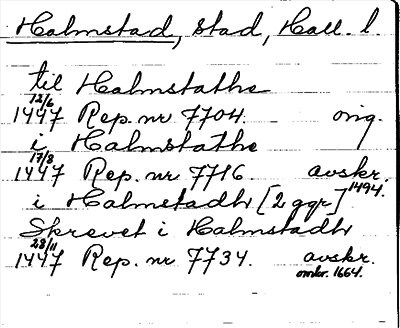 Halmstad, stad, Hall. l
til Halmstathe
12/6
1447 Rep. nr 7704. orig.
i Halmstathe
17/8
1447 Rep. nr 7716. avskr.
1494.
i Halmstadh [2 ggr]
Skrevet i Halmstadh
23/11
1447 Rep. nr 7734. avskr.
omkr. 1664.